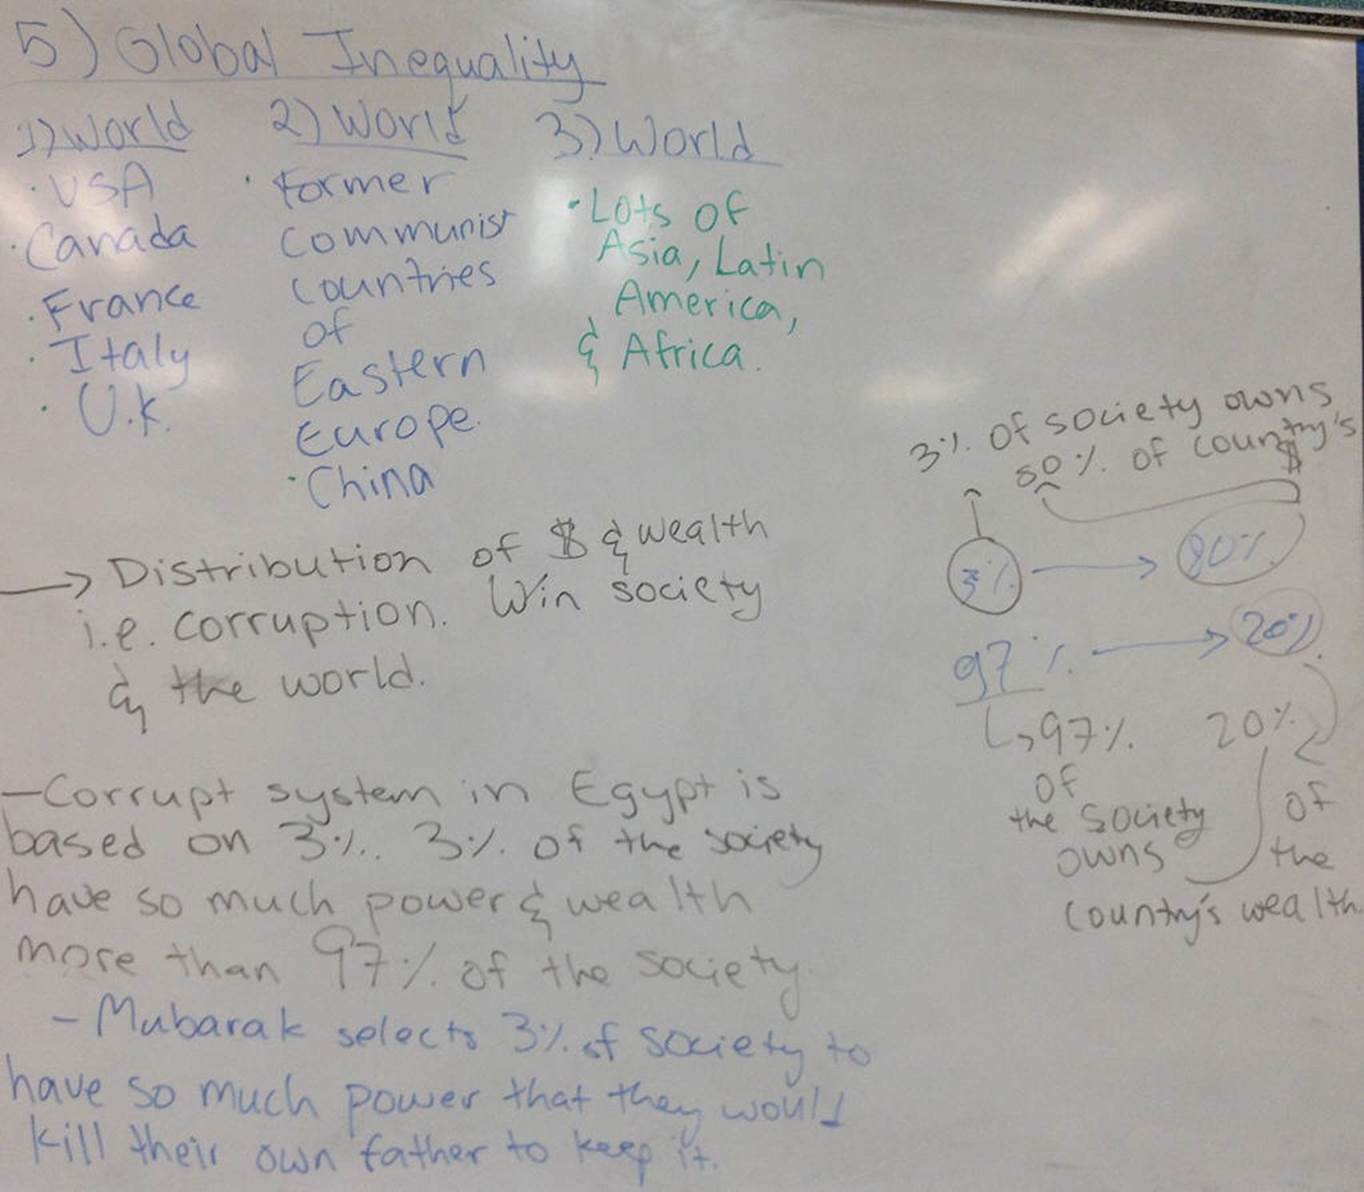 5) Global Inequality
1) World
· USA
· Canada
· France
· Italy
· U.K.
2) World
· Former
Communist
Countries
of
Eastern
Europe.
· China
3) World
· Lots of
Asia, Latin
America,
& Africa.
→ Distribution of $ & wealth
i.e. corruption. W/in society
& the world.
- Corrupt system in Egypt is
based on 3%. 3% of the society
have so much power & wealth
more than 97% of the society.
- Mubarak selects 3% of society to
have so much power that they would
kill their own father to keep it.
3% of society owns
80% of country's
$
3% → 80%
97% → 20%
↳ 97% 20%
of of
the society the
owns
country's wealth.